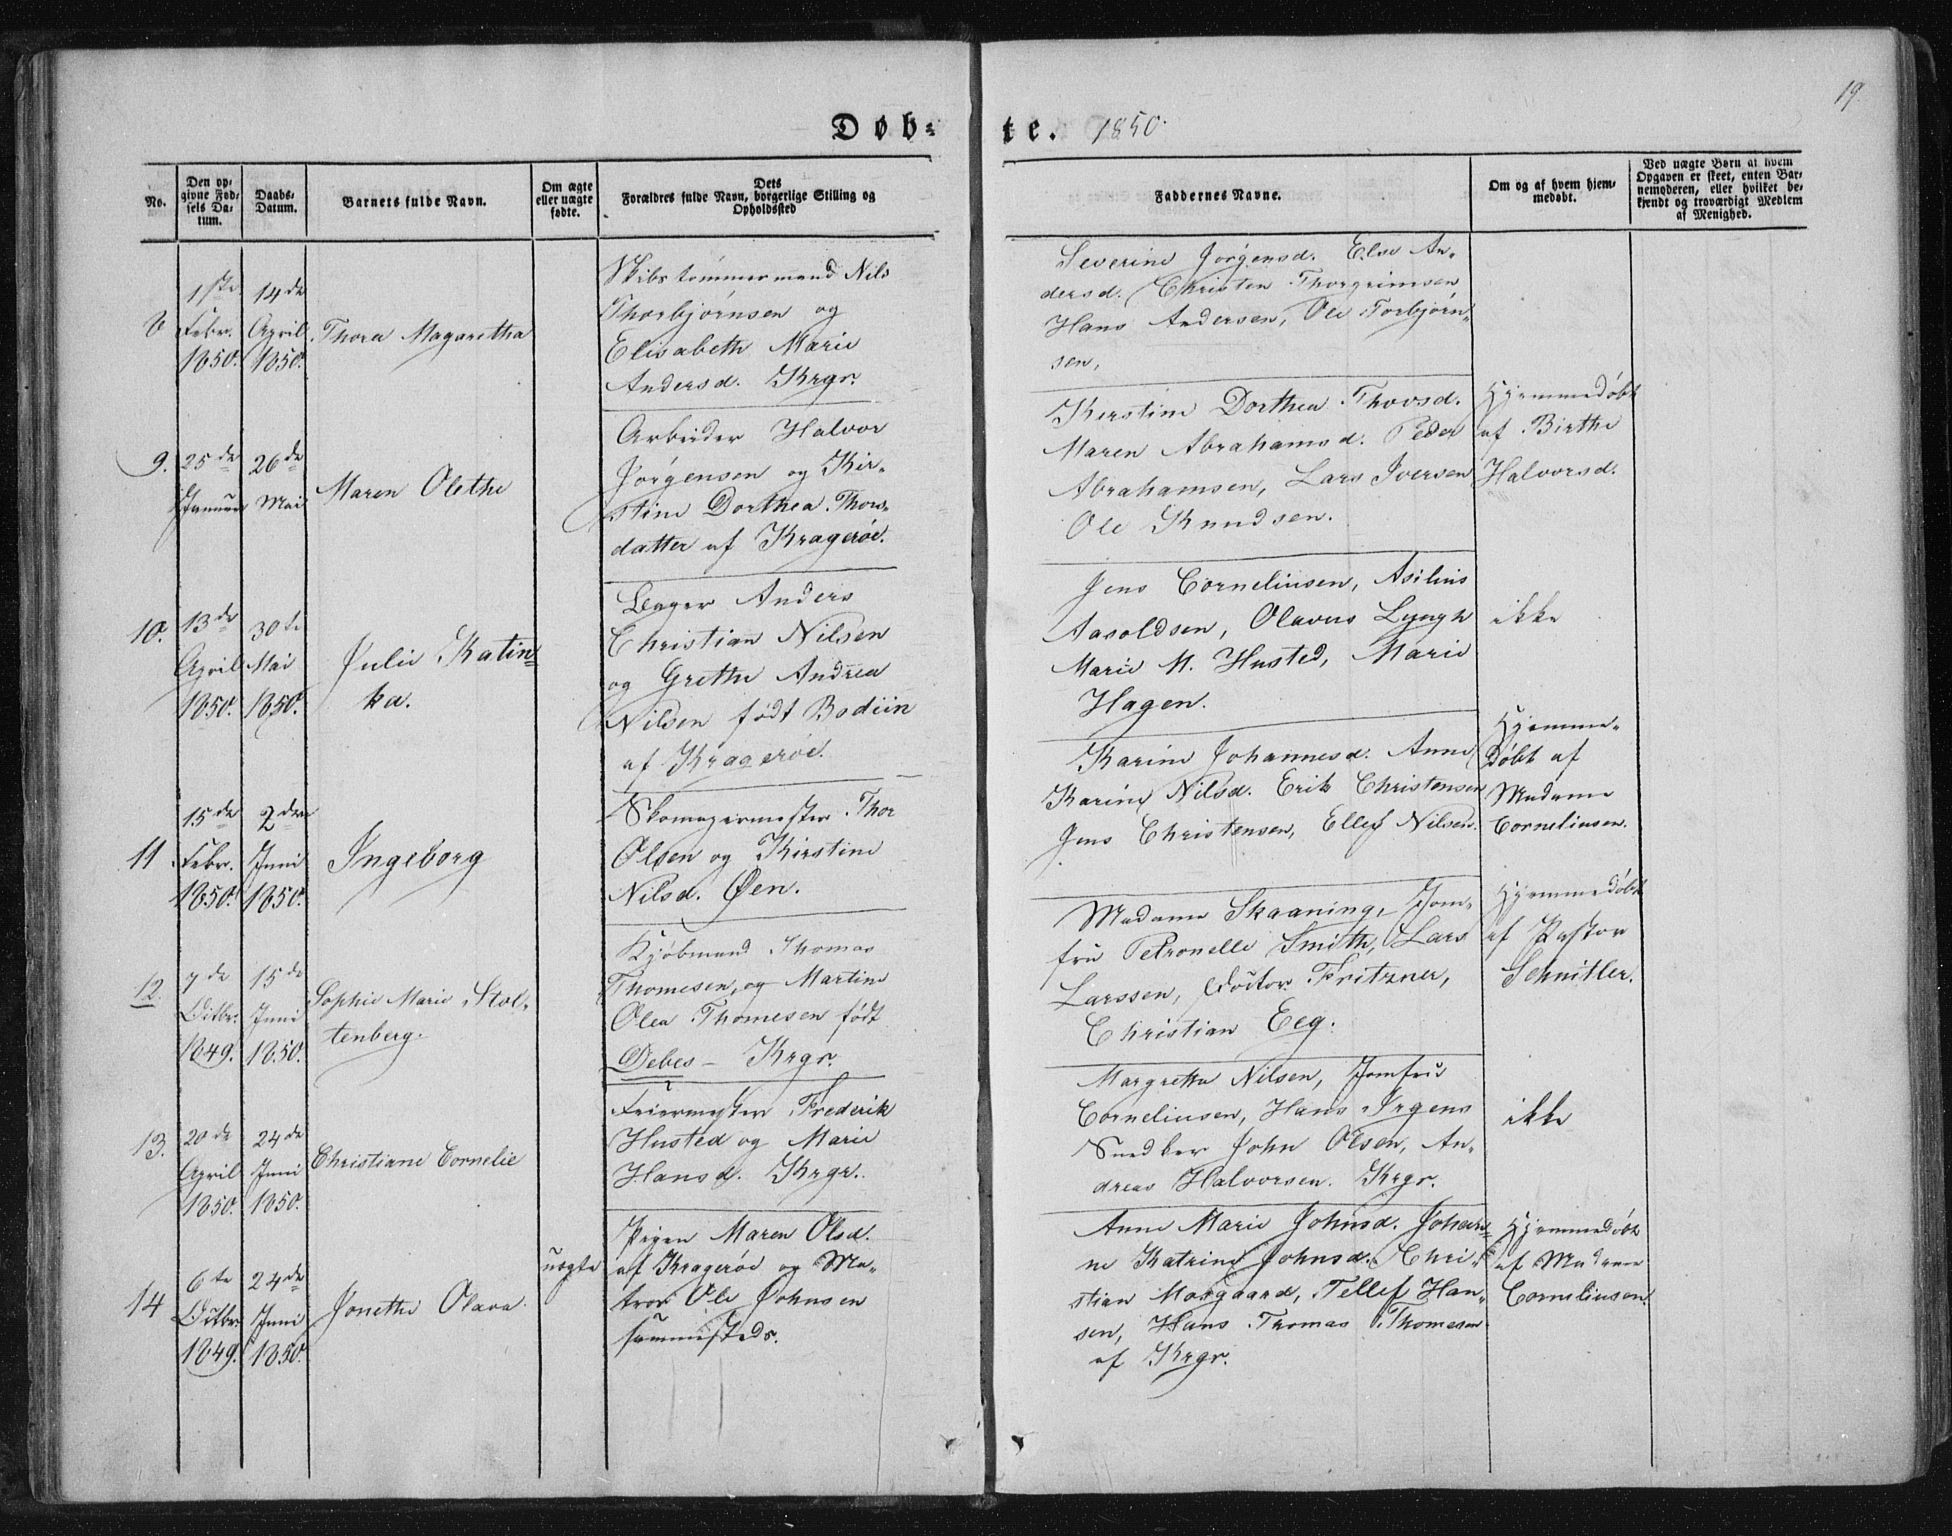 19.
Døb- te. 1850.
No.
Den op-
givne Fød-
sels Da-
tum.
Daabs-
Datum.
Barnets fulde Navn.
Om ægte
eller uægte
fødte.
Dets
Forældres fulde Navn, borgerlige Stilling og
Opholdssted
Faddernes Navne.
Om og af hvem hjem-
medøbt.
Ved uægte Børn at hvem
Opgaven er skeet, enten Bar-
nemoderen, eller hvilket be-
kjendt og troværdigt Medlem
af Menighed.
8
1ste
Febr.
1850.
14de
April
1850.
Thora Magaretha
Skibstømmermand Nils
Thorbjørnsen og
Elisabeth Marie
Andersd. Krgr.
Severine Jørgensd. Else An-
dersd. Christen Thorgrimsen
Hans Andersen, Ole Torbjørn-
sen,
9.
25de
Januar
26de
Mai
Maren Olethe
Arbeider Halvor
Jørgensen og Kir-
stine Dorthea Thors-
datter af Kragerøe.
Kerstine Dorthea Thovsd.
Maren Abrahamsd. Peder
Abrahamsen, Lars Iversen
Ole Knudsen.
Hjemmedøbt
af Birthe
Halvorsd.
10.
13de
April
1850.
30te
Mai
1850.
Julie Katin-
ka.
Bager Anders
Christian Nilsen
og Grethe Andrea
Nilsen født Bodiin
af Kragerøe.
Jens Corneliusen, Asilius
Aasoldsen, Olavus Lyngh
Marie M. Husted, Marie
Hagen.
ikke
11
15de
Febr.
1850.
2den
Juni
1850.
Ingeborg
Skomagermester Thor
Olsen og Kirstine
Nilsd. Øen.
Karine Johannesd. Anne
Karine Nilsd. Erik Christensen
Jens Christensen, Ellef Nilsen.
Hjemme-
døbt af
Madame
Corneliusen.
12.
7de
Octbr.
1849.
15de
Juni
1850.
Sophie Marie Stol-
tenberg.
Kjøbmand Thomas
Thomesen, og Martine
Olea Thomesen født
Debes - Krgr.
Madame Skaaning, Jom-
fru Petronelle Smith, Lars
Larssen, Doctor Fritzner,
Christian Eeg.
Hjemmedøbt
af Pastor
Schnitler.
13.
20de
April
1850.
24de
Juni
1850.
Christiane Cornelie
Feiermester Frederik
Husted og Marie
Hansd. Krgr.
Margretha Nilsen, Jomfru
Corneliusen, Hans Irgens
Snedker John Olsen, An-
dreas Halvorsen. Krgr.
ikke
14
6te
Octbr.
1849.
24de
Juni
1850.
Jonethe Olava.
uægte
Pigen Maren Olsd.
af Kragerøe og Ma-
tros Ole Johnsen
sammesteds.
Anne Marie Johnsd. Johan-
ne Katrine Johnsd. Chri-
stian Mosgaard, Tellef Han-
sen, Hans Thomas Thomesen
af Krgr.
Hjemmedøbt
af Madame
Corneliusen.